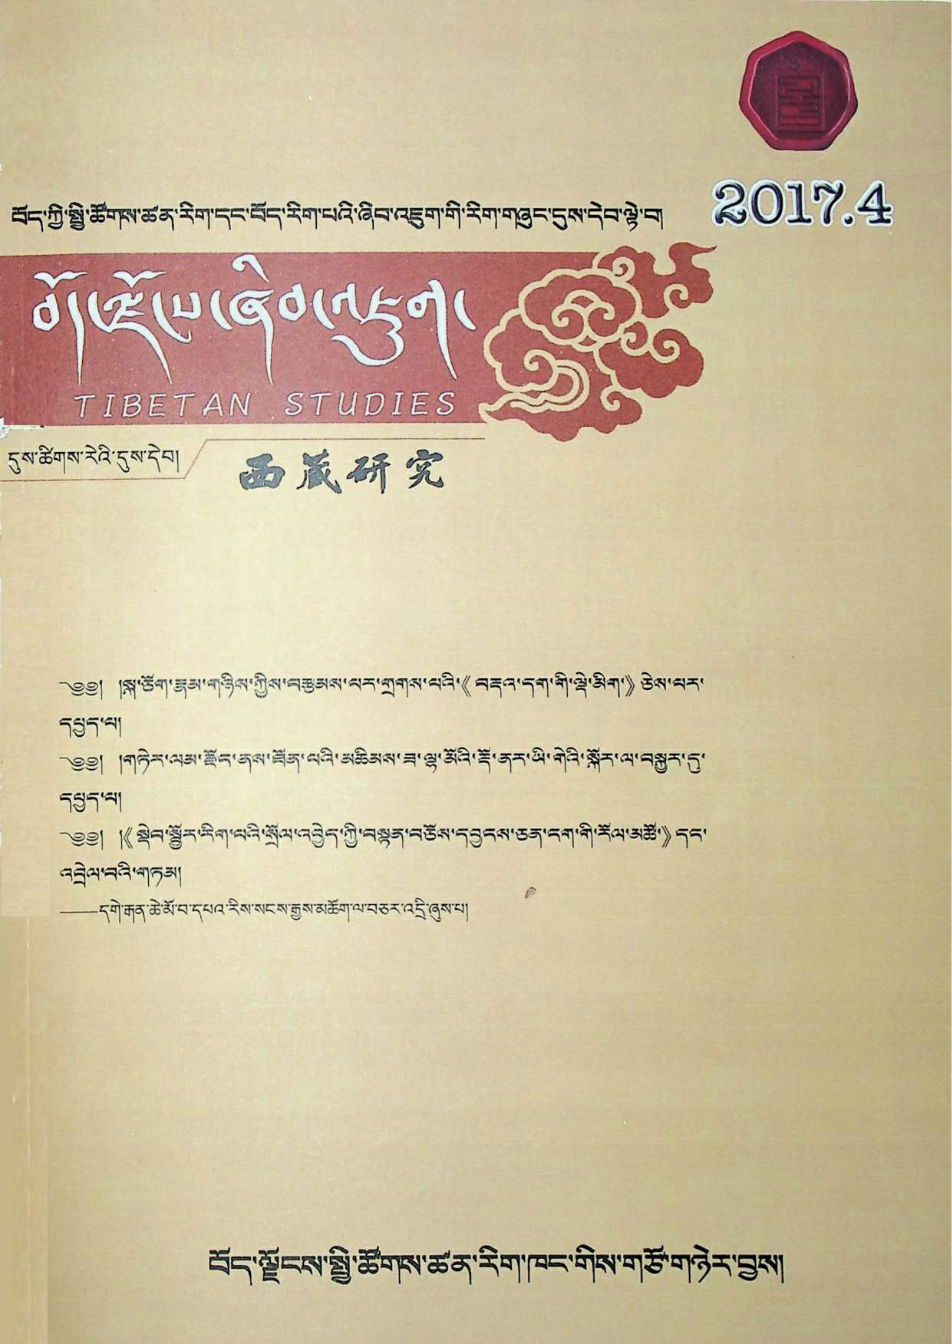 བོད་ཀྱི་སྤྱི་ཚོགས་ཚན་རིག་དང་བོད་རིག་པའི་ཞིབ་འཇུག་གི་རིག་གཞུང་དུས་དེབ་ལྟེ་བ།
2017.4
བོད་ལྗོངས་ཞིབ་འཇུག
TIBETAN STUDIES
དུས་ཚིགས་རེའི་དུས་དེབ།
西藏研究
༄༅། །སྐ་ཅོག་རྣམ་གཉིས་ཀྱིས་བརྩམས་པར་གྲགས་པའི་《བརྡའ་དག་གི་ལྡེ་མིག་》ཅེས་པར་
དཔྱད་པ།
༄༅། །གཏེར་ལམ་རྫོང་ནས་ཐོན་པའི་མཆིམས་ཟ་ལྷ་མོའི་རྡོ་ནར་ཡི་གེའི་སྐོར་ལ་བསྐྱར་དུ་
དཔྱད་པ།
༄༅། །《སྡེབ་སྦྱོར་རིག་པའི་སྲོལ་འབྱེད་ཀྱི་བསྟན་བཅོས་དབྱངས་ཅན་ངག་གི་རོལ་མཚོ་》དང་
འབྲེལ་བའི་གཏམ།
——དགེ་རྒན་ཆེ་མོ་བ་དཔའ་རིས་སངས་རྒྱས་མཆོག་ལ་བཅར་འདྲི་ཞུས་པ།
བོད་ལྗོངས་སྤྱི་ཚོགས་ཚན་རིག་ཁང་གིས་གཙོ་གཉེར་བྱས།